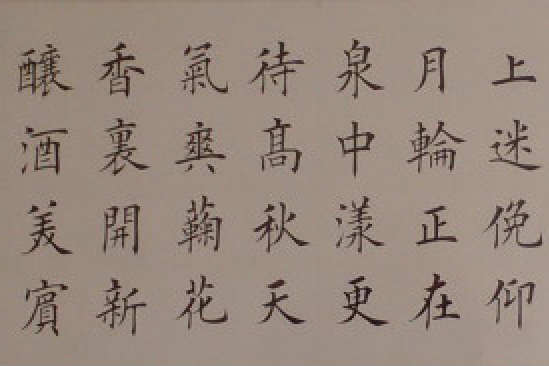 上迷俛仰
月輪正在
泉中漾更
待髙秋天
氣爽蘜花
香裏開新
釀酒美賓